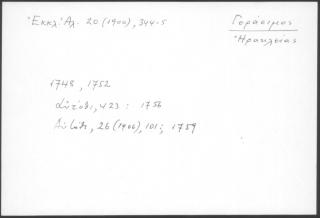 Ἐκκλ. Ἀλ. 20 (1900), 344-5
Γεράσιμος
Ἡρακλείας
1748, 1752
Αὐτόθι, 423: 1756
Αὐτόθι, 26 (1906), 101; 1759